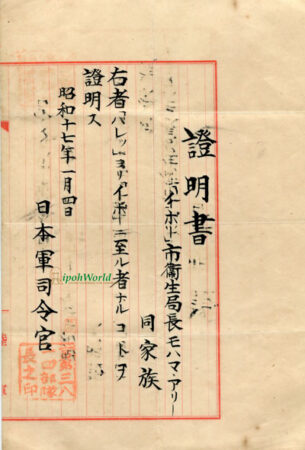 證明書
「イポー」市衛生局長モハマ・アリー
同家族
右者「パレッ」ヨリ「イポー」ニ至ル者ナルコトヲ
證明ス
昭和十七年一月四日
日本軍司令官
第三八
四部隊
長之印
ipohWorld